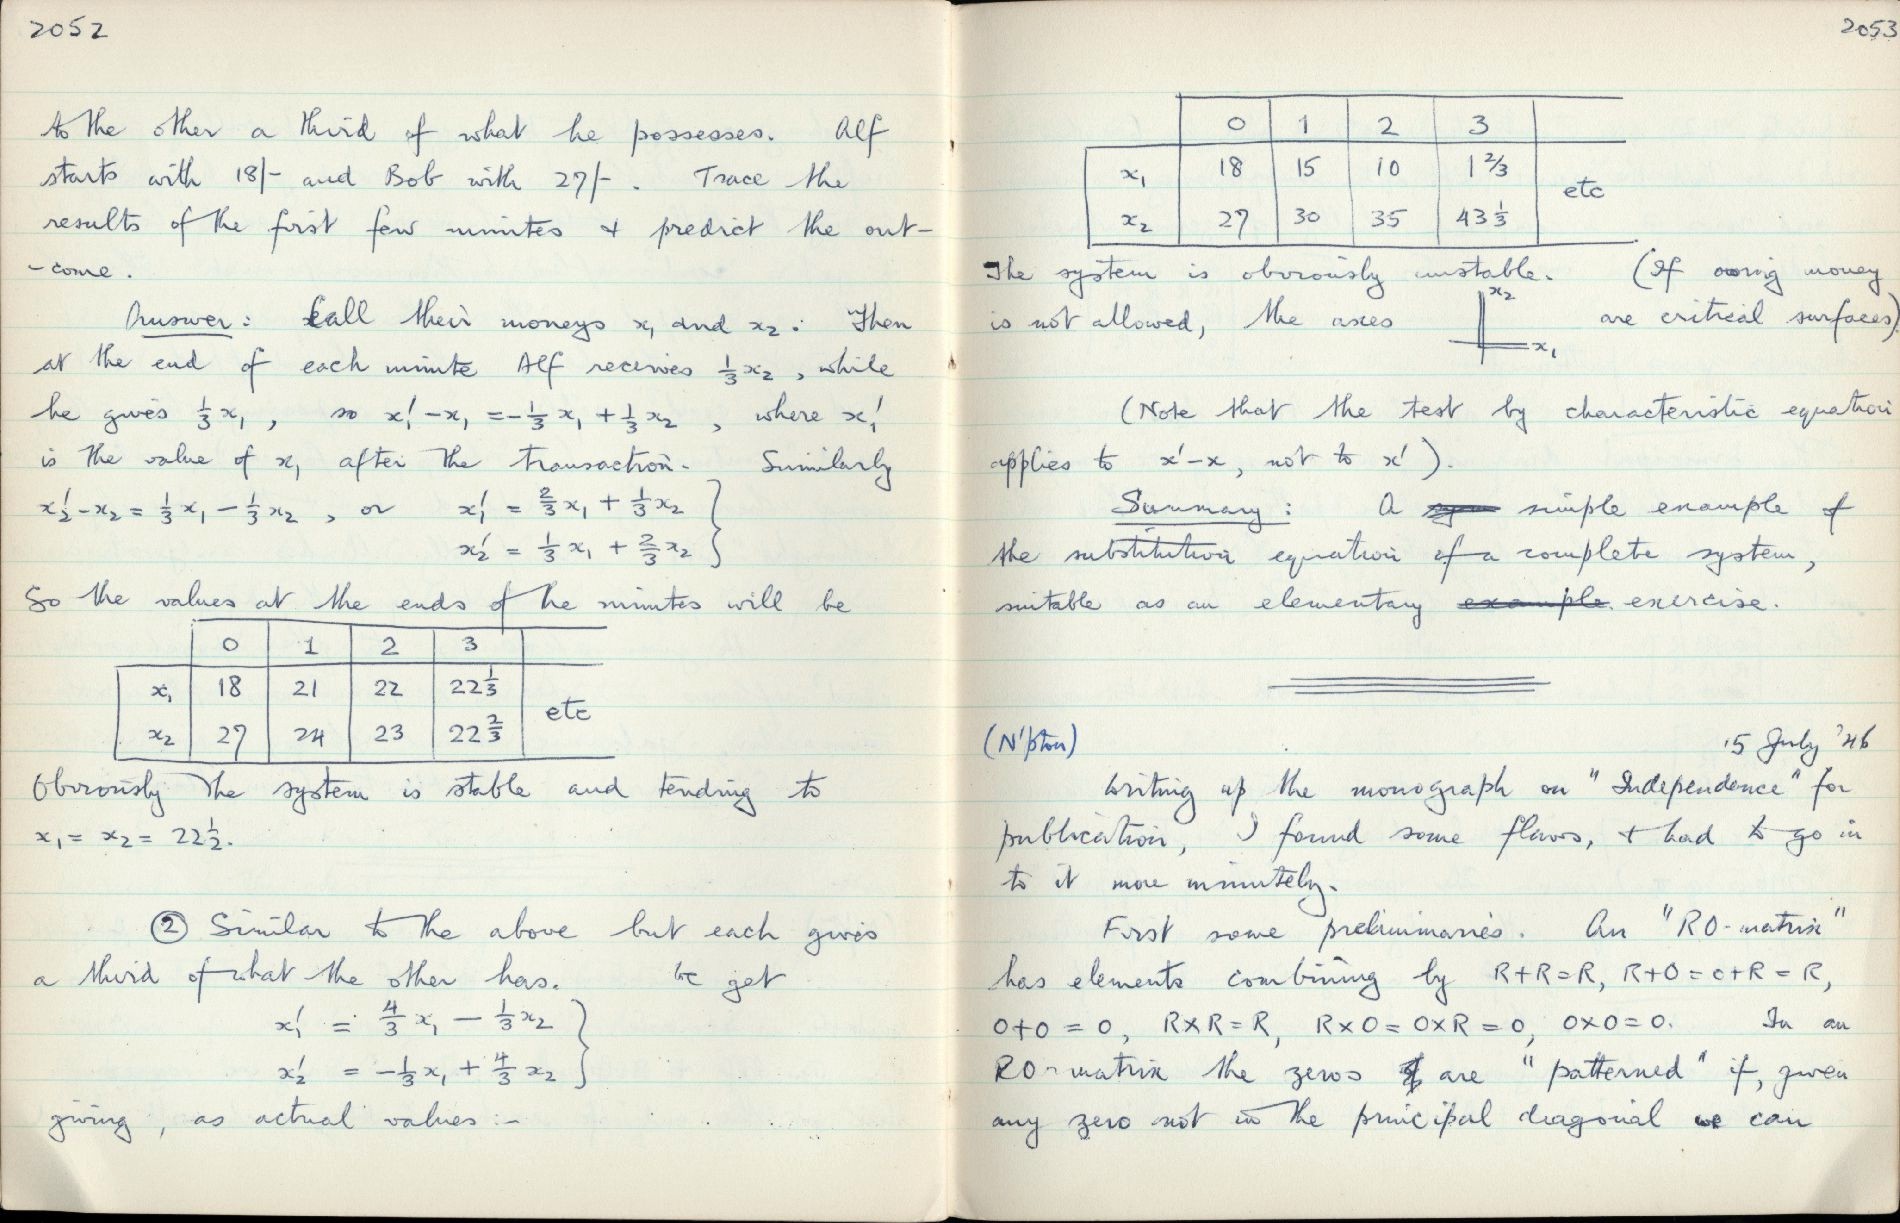 2052
to the other a third of what he possesses. Alf
starts with 18/- and Bob with 27/-. Trace the
results of the first few minutes & predict the out-
-come.
Answer: Call their moneys x₁ and x₂. Then
at the end of each minute Alf receives ⅓x₂, while
he gives ⅓x₁, so x₁′-x₁ = -⅓x₁ + ⅓x₂, where x₁′
is the value of x₁ after the transaction. Similarly
x₂′-x₂ = ⅓x₁ - ⅓x₂, or x₁′ = ⅔x₁ + ⅓x₂ }
x₂′ = ⅓x₁ + ⅔x₂
So the values at the ends of the minutes will be
0 1 2 3
x₁ 18 21 22 22⅓
etc
x₂ 27 24 23 22⅔
Obviously the system is stable and tending to
x₁ = x₂ = 22½.
② Similar to the above but each gives
a third of what the other has. We get
x₁′ = 4/3 x₁ - ⅓x₂ }
x₂′ = -⅓x₁ + 4/3 x₂
giving, as actual values :-
2053
0 1 2 3
x₁ 18 15 10 1⅔
etc
x₂ 27 30 35 43⅓
The system is obviously unstable. (If owing money
is not allowed, the axes x₂ x₁ are critical surfaces)
(Note that the test by characteristic equation
applies to x′-x, not to x′).
Summary: A simple example of
the substitution equation of a complete system,
suitable as an elementary example exercise.
(N'pton) 15 July '46
Writing up the monograph on "Independence" for
publication, I found some flaws, & had to go in
to it more minutely.
First some preliminaries. An "RO-matrix"
has elements combining by R+R=R, R+O=O+R=R,
O+O=O, R×R=R, R×O=O×R=O, O×O=O. In an
RO-matrix the zeros are "patterned" if, given
any zero not in the principal diagonal we can